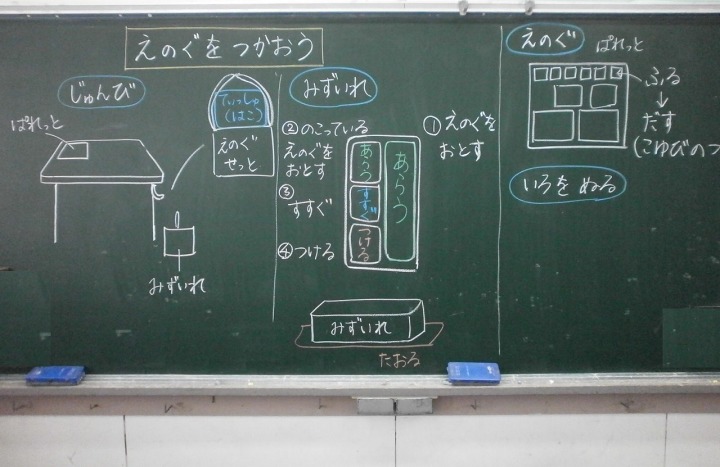 えのぐを つかおう
じゅんび
ぱれっと
てぃっしゅ
(はこ)
えのぐ
せっと
みずいれ
みずいれ
①えのぐを
おとす
②のこっている
えのぐを
おとす
③
すすぐ
④つける
あらう
あらう
すすぐ
つける
みずいれ
たおる
えのぐ
ぱれっと
ふる
↓
だす
(こゆびのつ
いろを ぬる